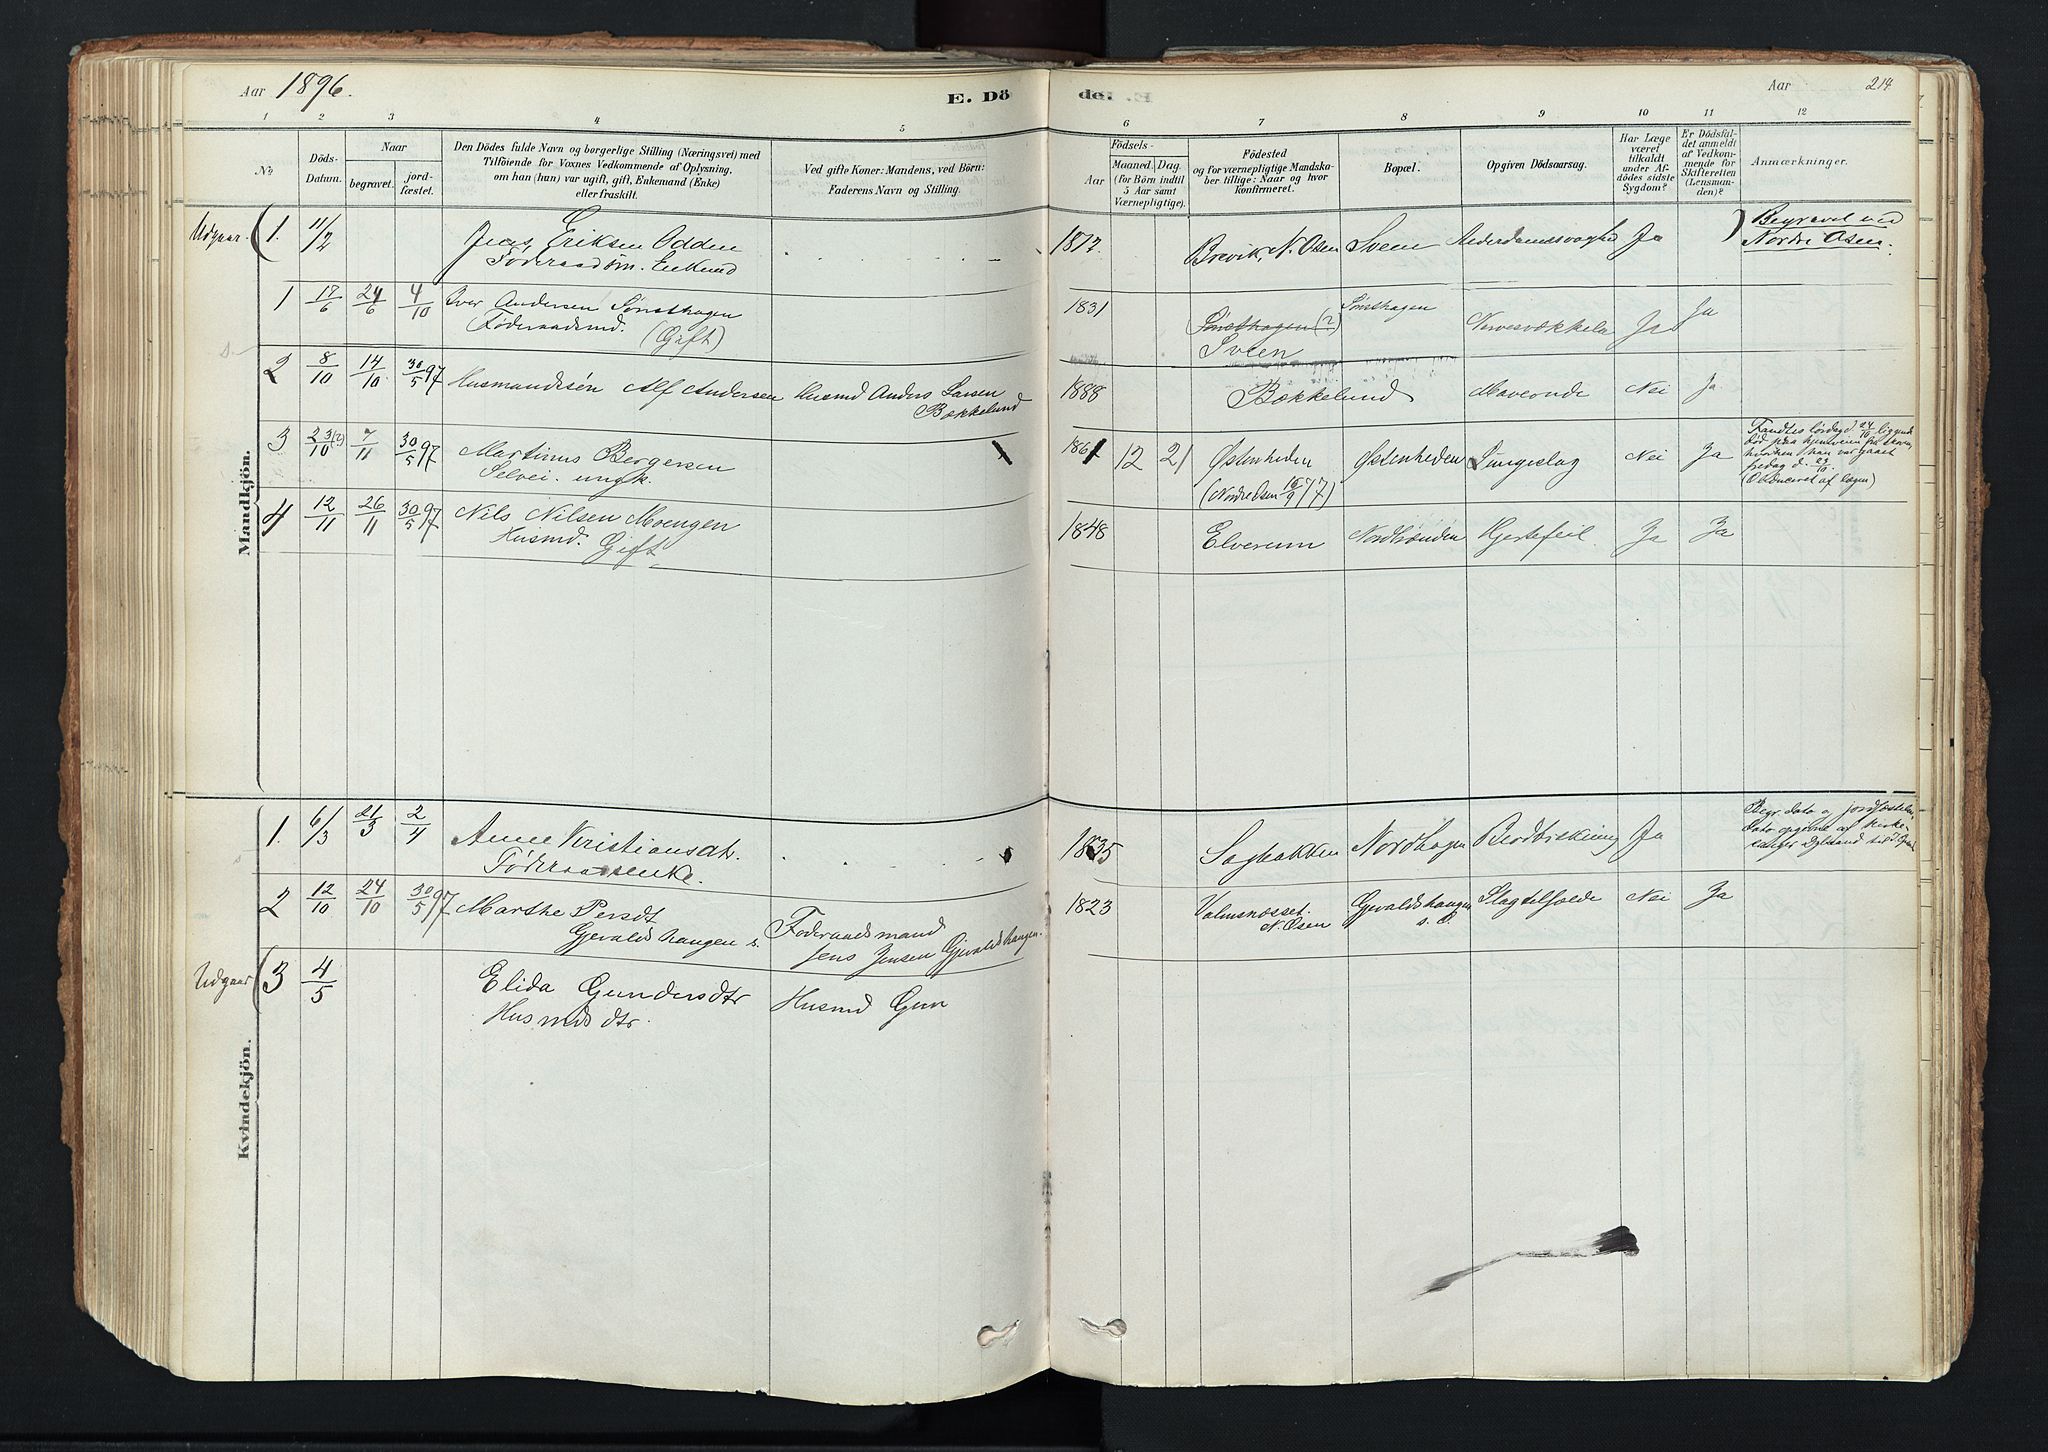 Aar 1896.
E. Dö
de. E. Dö
Aar
214
1 2 3 4 5 6 7 8 9 10 11 12
No
Döds-
Datum.
Naar
begravet. jord-
fæstet.
Den Dödes fulde Navn og borgerlige Stilling (Næringsvei) med
Tilföiende for Voxnes Vedkommende af Oplysning,
om han (hun) var ugift, gift, Enkemand (Enke)
eller fraskilt.
Ved gifte Koner: Mandens, ved Börn:
Faderens Navn og Stilling.
Födsels-
Aar
Maaned. Dag.
(for Börn indtil
5 Aar samt
Værnepligtige).
Födested
og for værnepligtige Mandska-
ber tillige: Naar og hvor
konfirmeret.
Bopæl.
Opgiven Dödsaarsag.
Har Læge
været
tilkaldt
under Af-
dödes sidste
Sygdom?
Er Dödsfal-
det anmeldt
af Vedkom-
mende for
Skifteretten
(Lensman-
den)?
Anmærkninger.
Mandkjön.
Udgaar. 1. 11/2 Eriksen Odden
Enkmd
1817. Brevik, N. Osen Sveen Ja
Begravet ved
Nordre Osen.
1 17/6 24/6 4/10 Iver Andersen Sønsthagen
Føderaadsmd.
(Gift)
1831 Sønsthagen (?)
Sveen
Sønsthagen Ja Ja
2 8/10 14/10 30/5 97 Husmandssøn Alf Andersen Husmd Anders Larsen
Bækkelund
1888 Bækkelund Mavesonde Nei Ja
3 23/10 (?) 7/11 30/5 97 Martinus Bergersen
Selvei. ungk.
1861 12 21 Østenheden
(Nordre Osen 16/9 77)
Østenheden Lungeslag Nei Ja
Fandtes lørdag d. 24/10 liggende
død paa hjemveien fra skoven,
hvorhen han var gaaet
fredag d. 23/10.
(Obduceret af lægen)
4 12/11 26/11 30/5 97 Nils Nilsen Moengen
Husmd. Gift
1848 Elverum Hjertefeil Ja Ja
Kvindekjön.
1. 6/3 21/3 2/4 Anne Kristiansdt.
Føderaadsenke.
1835 Sagbakken Nordhagen Ja
Begr. dato og jordfæstelses
dato opgivne af kirke-
sanger
2 12/10 24/10 30/5 97 Marthe Persdt
Gjevaldshaugen s.
Føderaadsmand
Jens Jensen Gjevaldshaugen.
1823 N. Osen
Gjevaldshaugen
s. Ø.
Slagtilfælde Nei Ja
Udgaar 3 4/5 Elida Gundersdtr
Husmdsdtr.
Husmd Gun